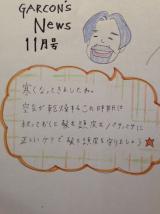 GARCON'S
News
11月号
寒くなってきましたね。
空気が乾燥するこの時期に
放っておくと髪も頭皮もパサパサに
正しいケアで髪も頭皮も守りましょう